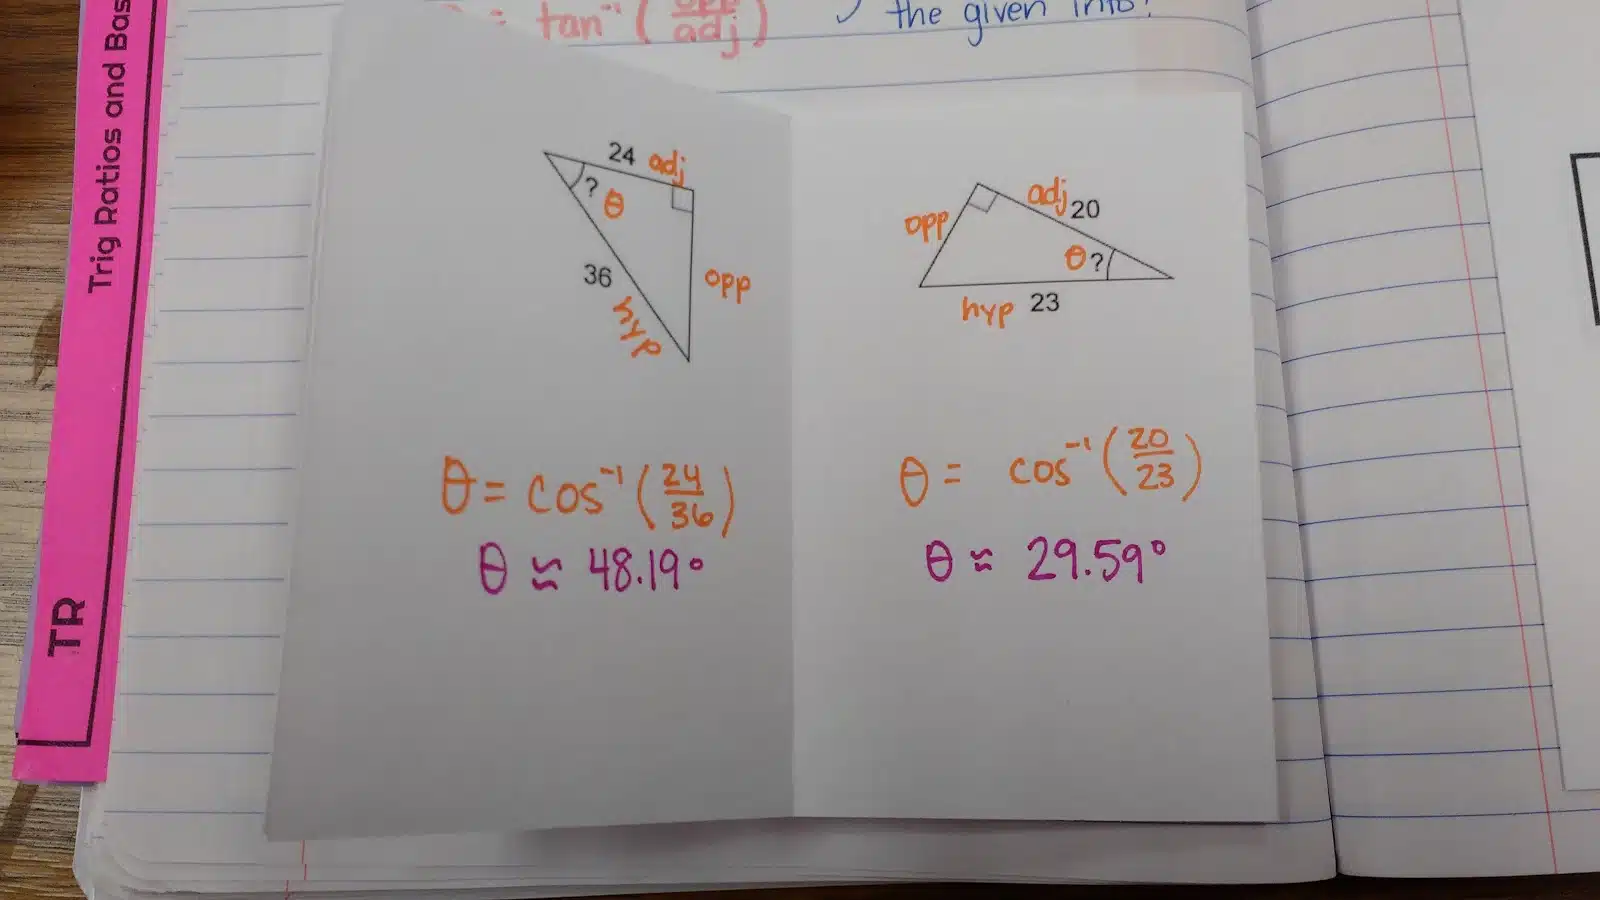 Trig Ratios and Bas
TR
= tan⁻¹ (opp/adj)
the given info!
24 adj
? θ
36
hyp
opp
θ = cos⁻¹ (24/36)
θ ≈ 48.19°
opp
adj 20
θ ?
hyp 23
θ = cos⁻¹ (20/23)
θ ≈ 29.59°